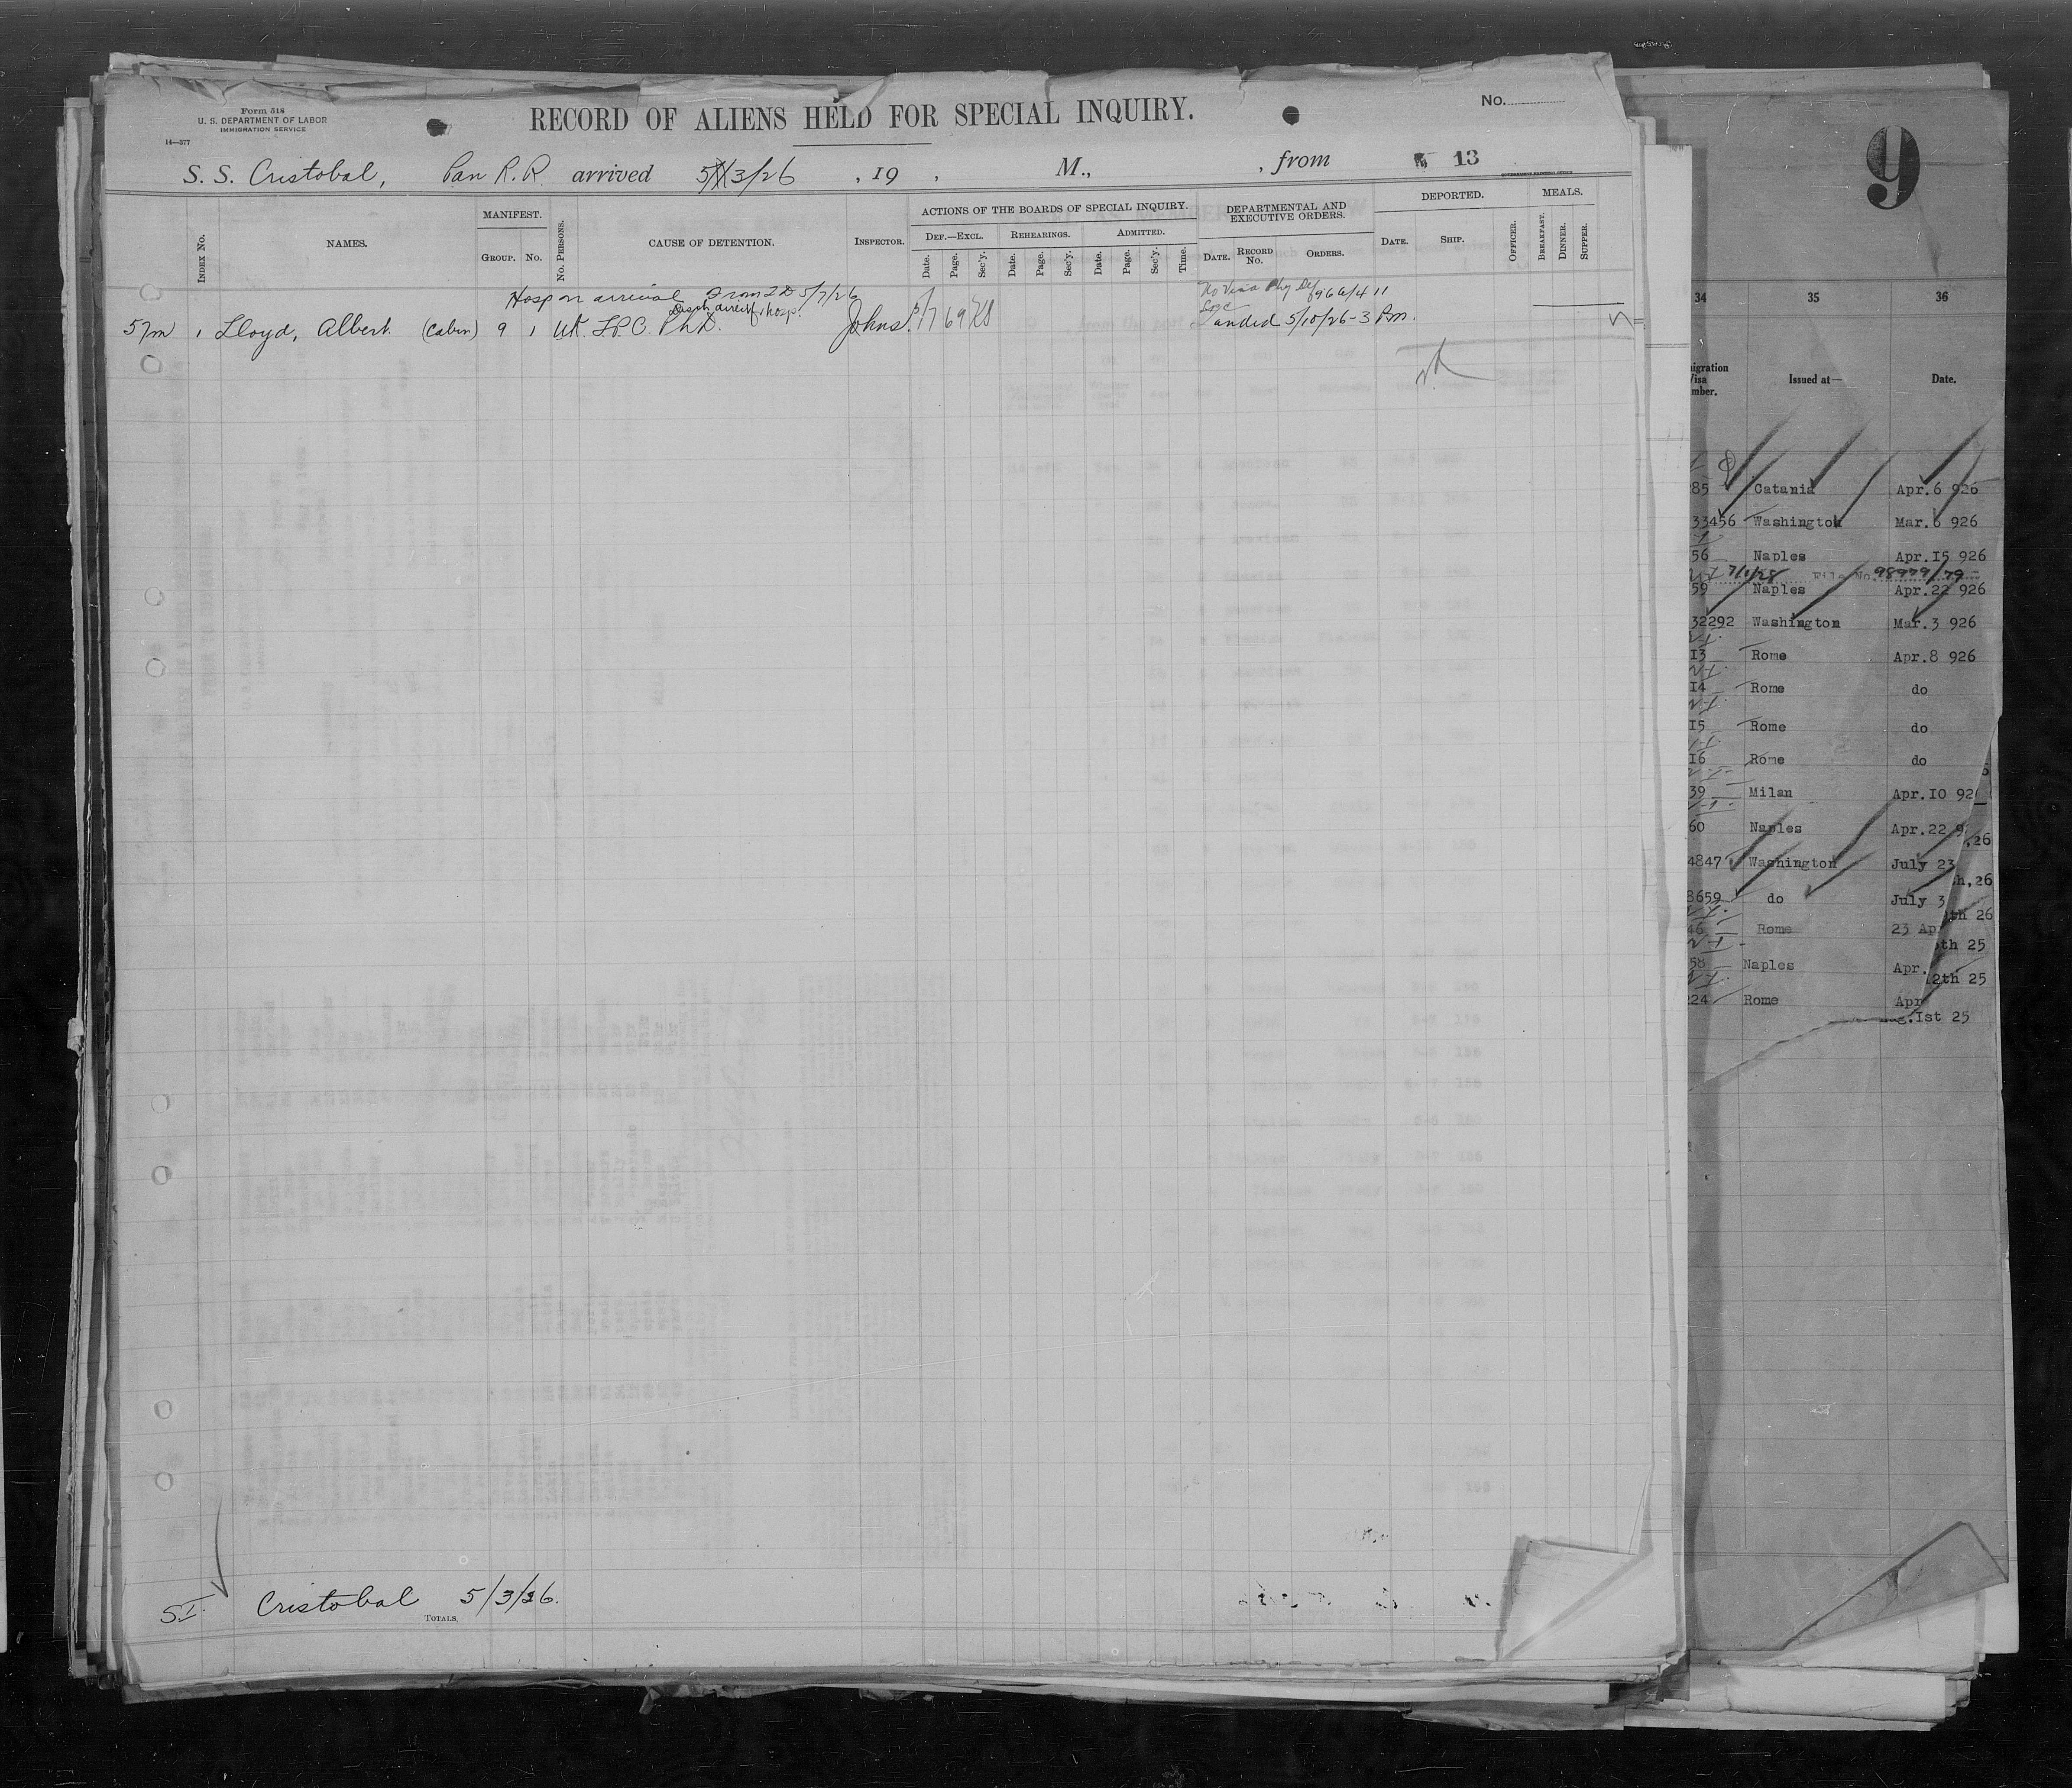 Form 518
U. S. DEPARTMENT OF LABOR
IMMIGRATION SERVICE
14—377
RECORD OF ALIENS HELD FOR SPECIAL INQUIRY.
No.
S. S. Cristobal, Pan R.R. arrived 5/3/26 , 19 , M., , from 13
GOVERNMENT PRINTING OFFICE
INDEX No.
NAMES.
MANIFEST.
GROUP. No.
No. PERSONS.
CAUSE OF DETENTION.
INSPECTOR.
ACTIONS OF THE BOARDS OF SPECIAL INQUIRY.
DEF.—EXCL. REHEARINGS. ADMITTED.
Date. Page. Sec'y. Date. Page. Sec'y. Date. Page. Sec'y. Time.
DEPARTMENTAL AND EXECUTIVE ORDERS.
DATE. RECORD No. ORDERS.
DEPORTED.
DATE. SHIP. OFFICER.
MEALS.
BREAKFAST. DINNER. SUPPER.
Hosp on arrival From 5/7/26
hosp.
No Visa Phy Def 966/411
57m 1 Lloyd, Albert (Cabin) 9 1 L.P.C. Ph.D. Johns. 5/7 69 KS Landed 5/10/26-3 Pm.
S.I. Cristobal 5/3/26.
TOTALS,
9
34 35 36
igration Visa mber.
Issued at—
Date.
85 Catania Apr.6 926
33456 Washington Mar.6 926
56 Naples Apr.15 926
7/1/28 File No. 98979/79
59 Naples Apr.22 926
32292 Washington Mar.3 926
13 Rome Apr.8 926
14 Rome do
15 Rome do
16 Rome do
39 Milan Apr.10 92
60 Naples Apr.22 9
,26
4847 Washington July 23
h,26
8659 do July 3
th 26
46 Rome 23 Ap
th 25
58 Naples Apr.
2th 25
224 Rome Apr
g.Ist 25